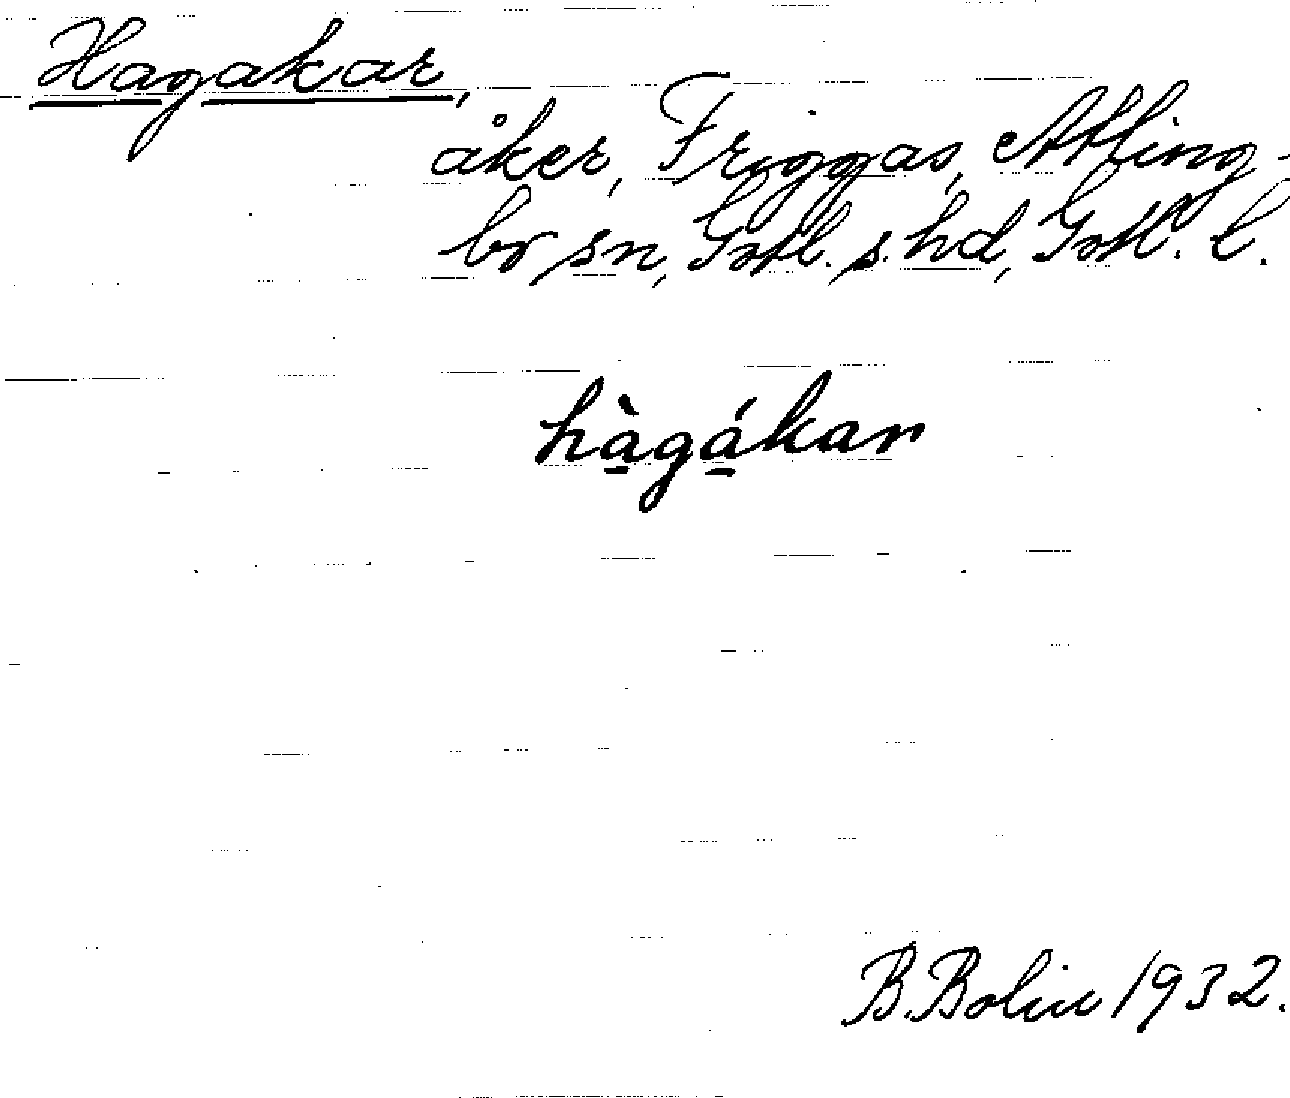 Hagakar,
åker, Friggas, Atling-
bo sn, Gotl. s. hd, Gotl. l.
hà̱gá̱kar
B. Bolin 1932.